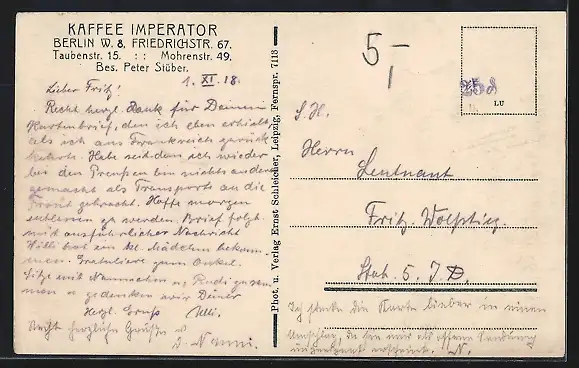 KAFFEE IMPERATOR
BERLIN W. 8, FRIEDRICHSTR. 67.
Taubenstr. 15. : : Mohrenstr. 49.
Bes. Peter Stüber.
1. XI. 18.
Lieber Fritz!
Recht herzl. Dank für Deinen
Kartenbrief, den ich eben erhielt
als ich aus Frankreich zurück
kehrte. Habe seitdem ich wieder
bei den Preußen bin nichts ander
gemacht als Transporte an die
Front gebracht. Hoffe morgen
zu werden. Brief folgt
mit ausführlicher Nachricht
Willi hat ein kl. Mädchen bekom-
men. Gratuliere zum Onkel.
Sitze mit u. Rudi zusam
men u. gedenken wir Deiner
Herzl. Gruß Willi.
Recht herzliche Grüße v.
Phot. u. Verlag Ernst Schleicher, Leipzig, Fernspr. 7113
5,-
LU
S. H.
Herrn
Leutnant
Fritz
Stab 5. I. D.
Ich stecke die Karte lieber in einen
Umschlag, da sie nur als offene Sendung
erscheint. N.